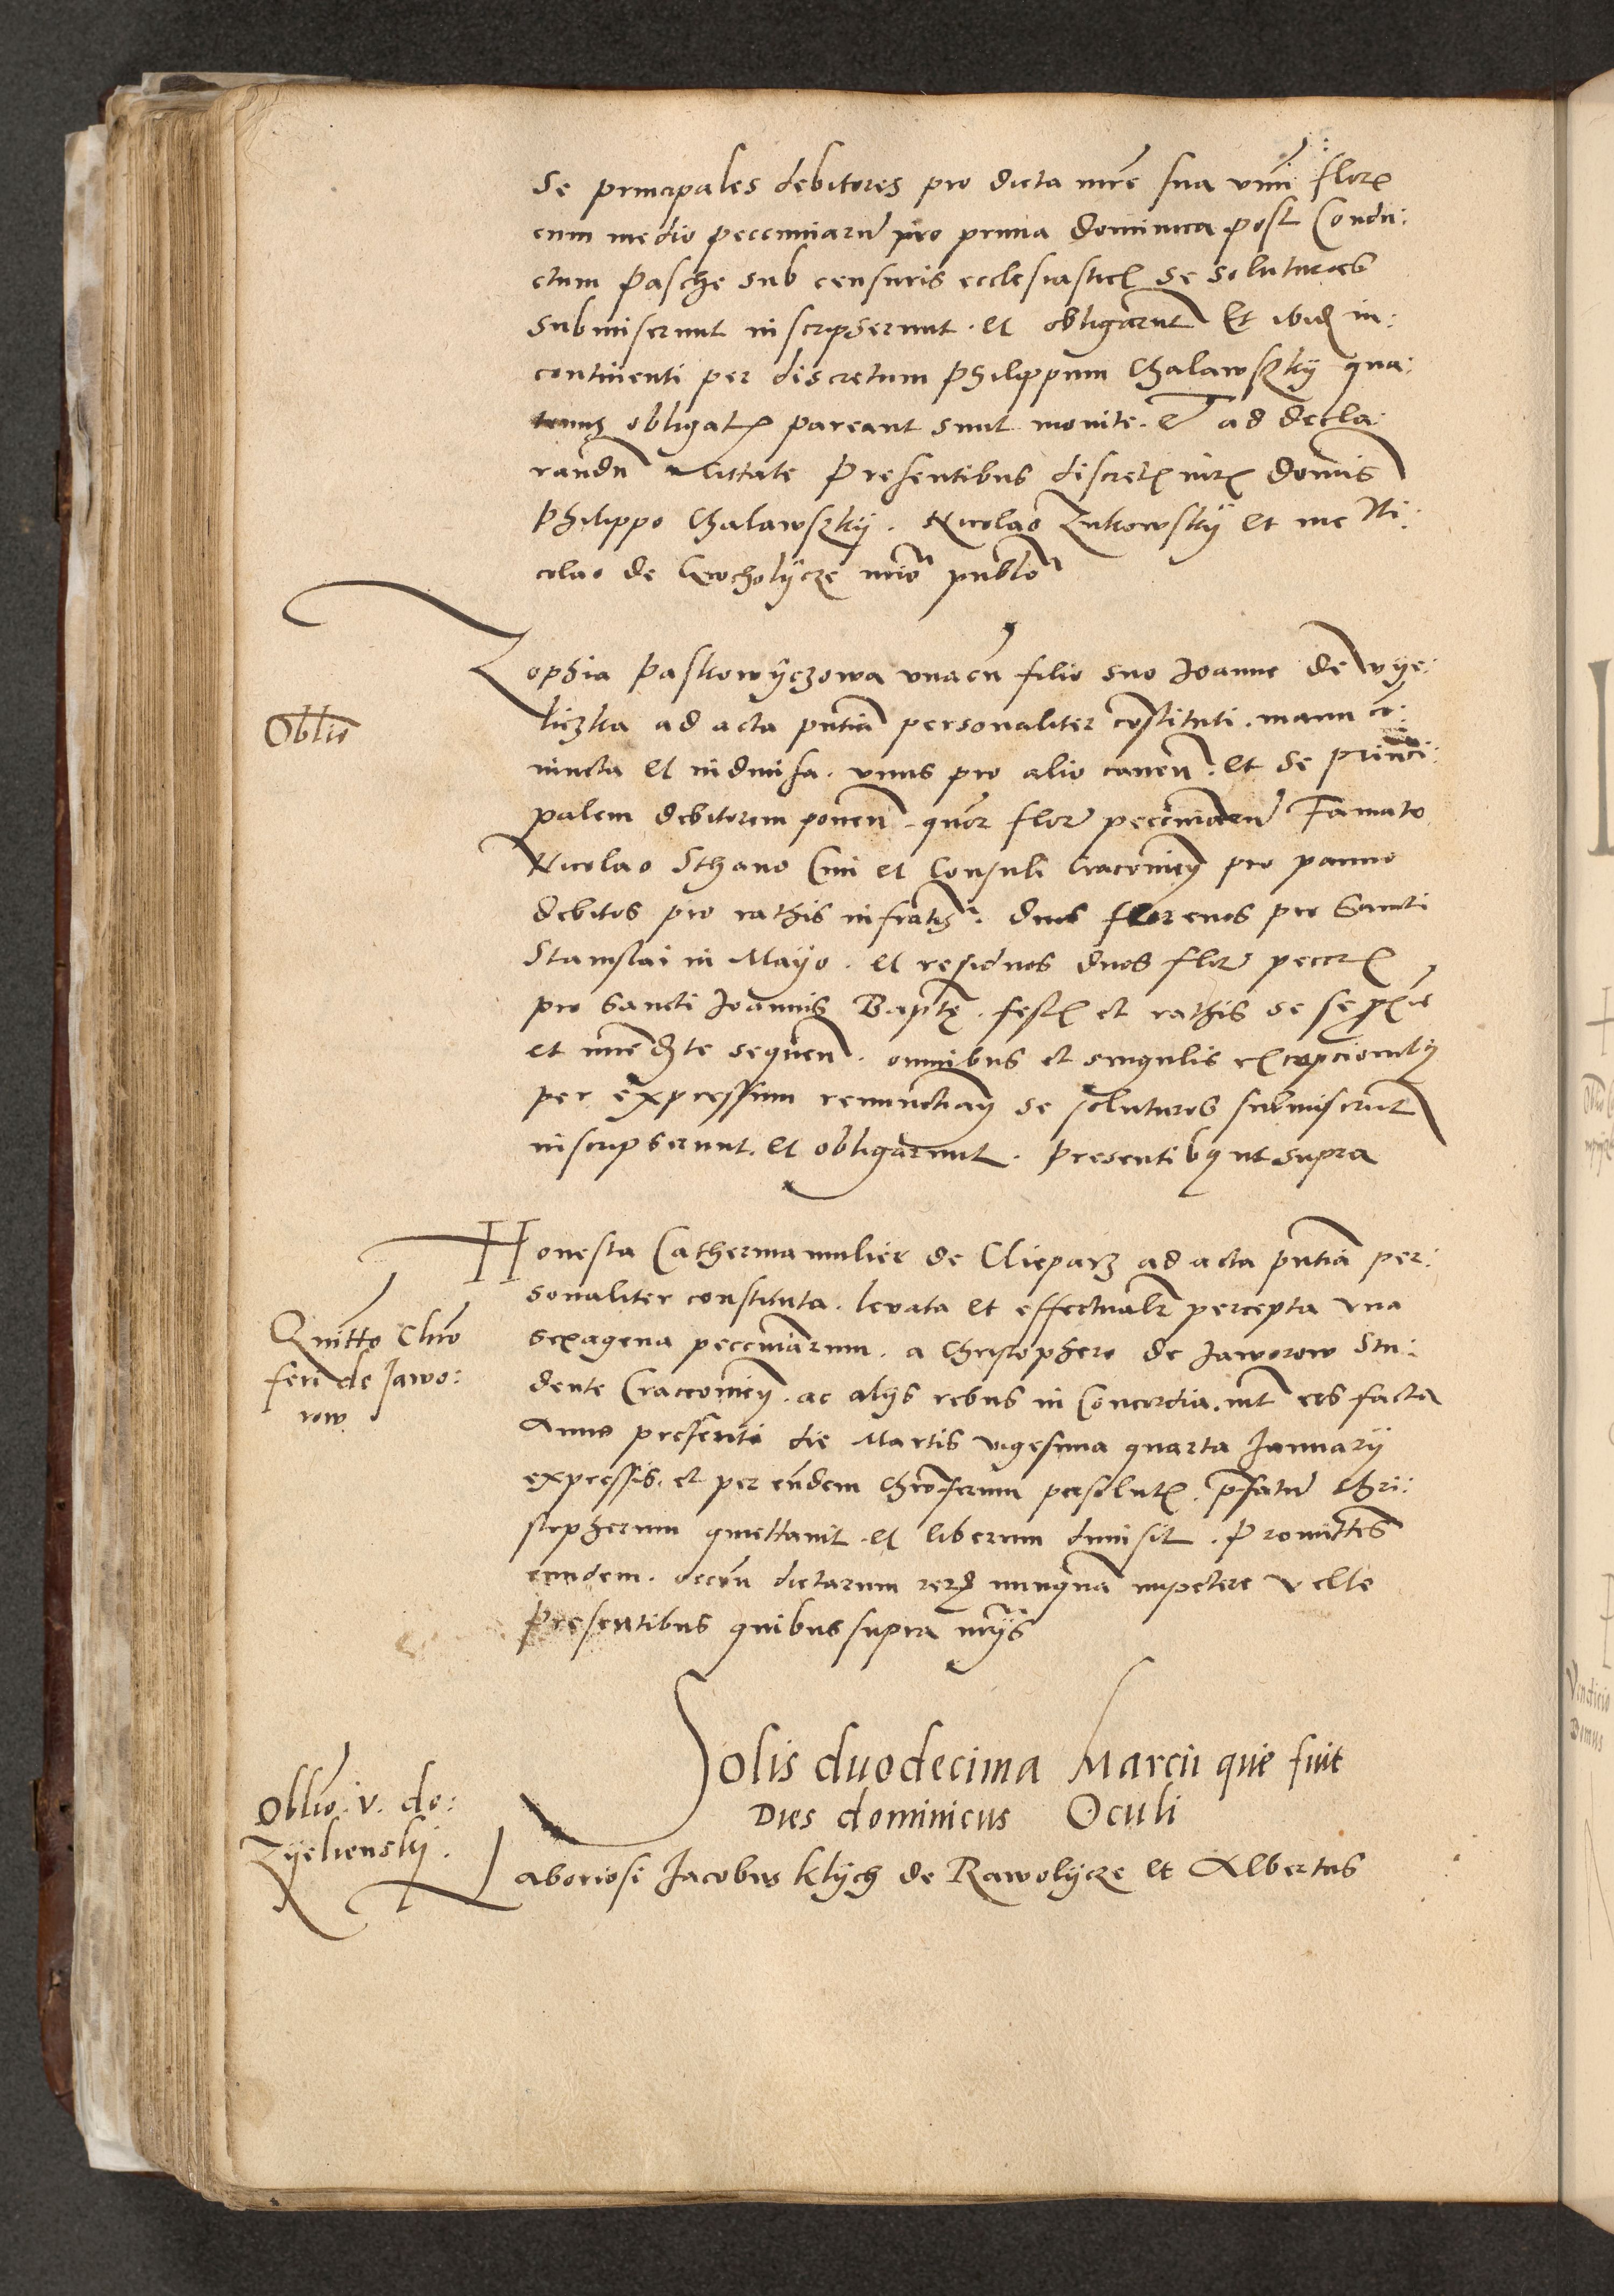 Se principales debitores pro dicta mre sua vnũ flor
cum medio pecuniarũ pro prima dominica post Condu:
ctum Pasche sub censuris ecclesiastic se soluturos
submiserunt inscripserunt. et obligarũt Et ibid in:
continenti per discretum Philippum Chalawsky qua:
tenus obligat pareant sunt monite. Et ad decla:
randũ citate Presentibus discret intr domis
Philippo Chalawsky. Nicolao Zukowsky et me Ni:
colao de Crocholycze nrio publo
Oblio
Zophia Paskowyczowa vnacũ filio suo Joanne de Wye:
liczka ad acta pntia personaliter cõstituti. manu cõ:
iuncta et indiuisa. vnus pro alio cauen. et se princi:
palem debitorem ponen. quor flor pecuniarũ Famato
Nicolao Schano Ciui et Consuli Cracouien pro panno
debitos pro rathis infrascr. duos florenos pro Sancti
Stanislai in Mayo. et residuos duos flor peccr
pro Sancti Joannis Bapte. fest et rathis se se prie
et immediate sequen. omnibus et singulis excepcionibus
per expressum renuncian se soluturos submiserũt
inscripserunt. et obligarunt. Presentibus ut supra
Quitto Chrõ
feri de Jawo:
row
Honesta Catherina mulier de Clieparz ad acta pntia per:
sonaliter constituta. leuata et effectualr percepta vna
sexagena pecuniarum. a Christophero de Jaworow Stu:
dente Cracouien. ac alijs rebus in Concordia. int eos facta
Anno presenti die Martis vigesima quarta Januarij
expressis. et per eundem Chroferum persolut. pfatũ Chri:
stopherum quittauit. et liberum dimisit. Promittens
eundem. occõn dictarum rerũ nunquã impetere velle
Presentibus quibus supra nrijs
Solis duodecima Marcii que fuit
Dies dominicus Oculi
Oblio. v. do:
Zyelienski.
Laboriosi Jacobus Klych de Rawolycze et Albertus